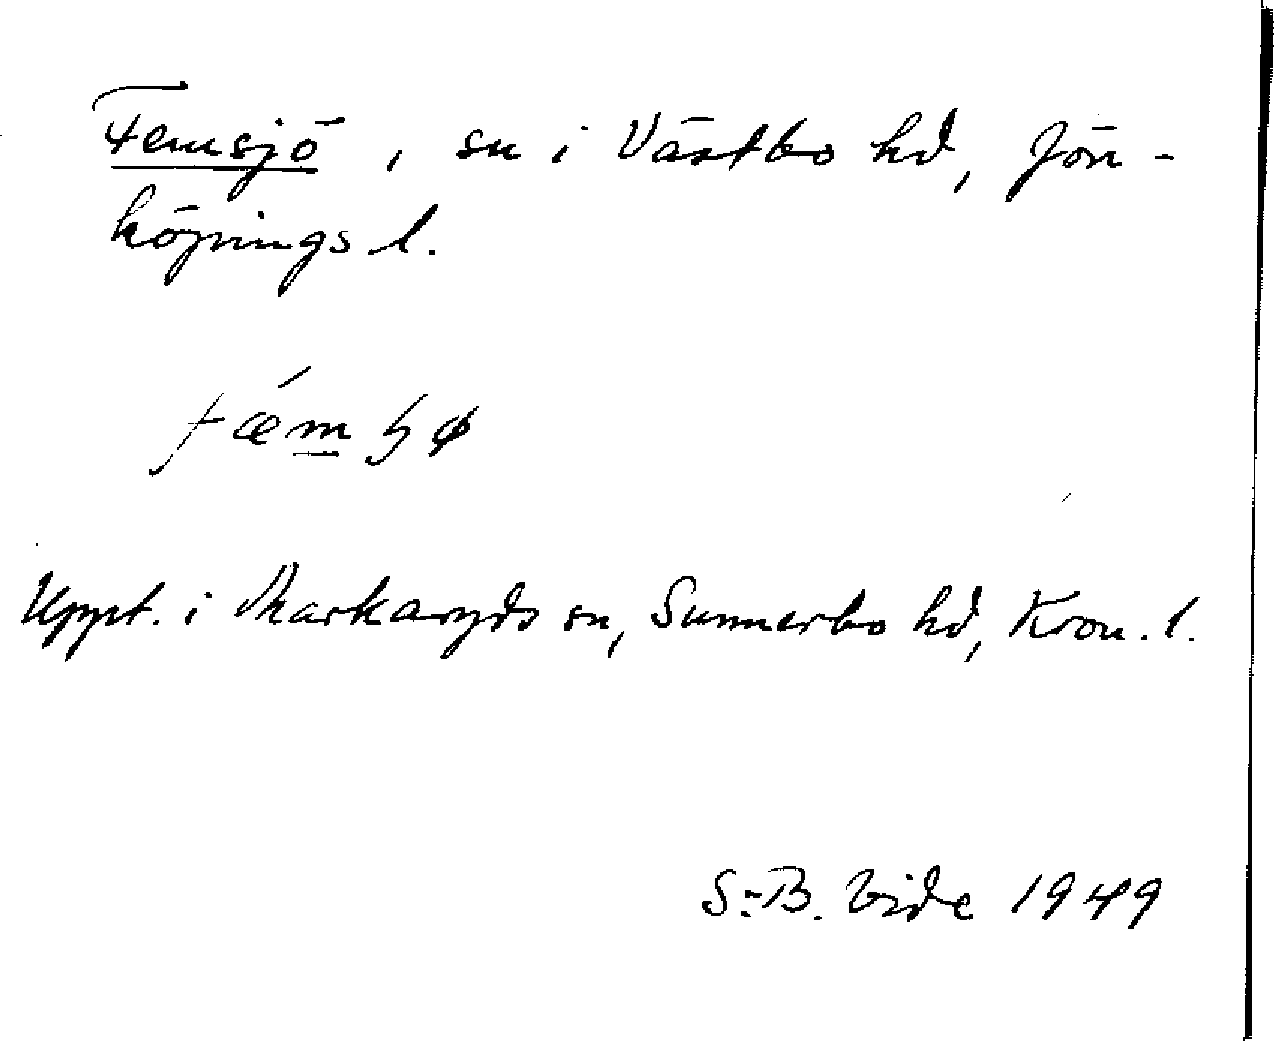 Femsjö, sn i Västbo hd, Jön-
köpings l.
fǽm̲ ʃø
Uppt. i Markaryds sn, Sunnerbo hd, Kron. l.
S:-B. Vide 1949